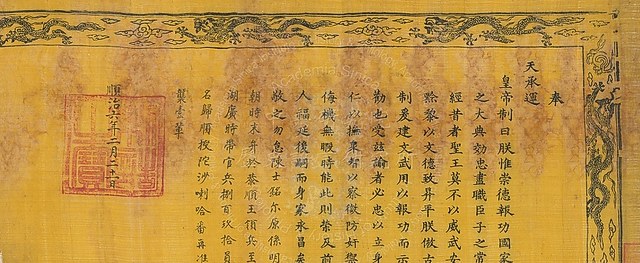 奉
天承運
皇帝制曰朕惟崇德報功國家
之大典効忠盡職臣子之常
經昔者聖王莫不以威武安
黔黎以文德致昇平朕倣古
制爰建文武用以報功而示
勸也受玆諭者必忠以立身
仁以撫衆智以察微防奸禦
侮機無暇時能此則榮及前
人福延後嗣而身家永昌矣
敬之勿怠陳士銘尔原係明
朝時末年於蔡順王領兵至
湖廣時帶官兵捌百玖拾員
名歸順授陀沙喇哈番再准
襲壹輩
順治六年二月二十一日